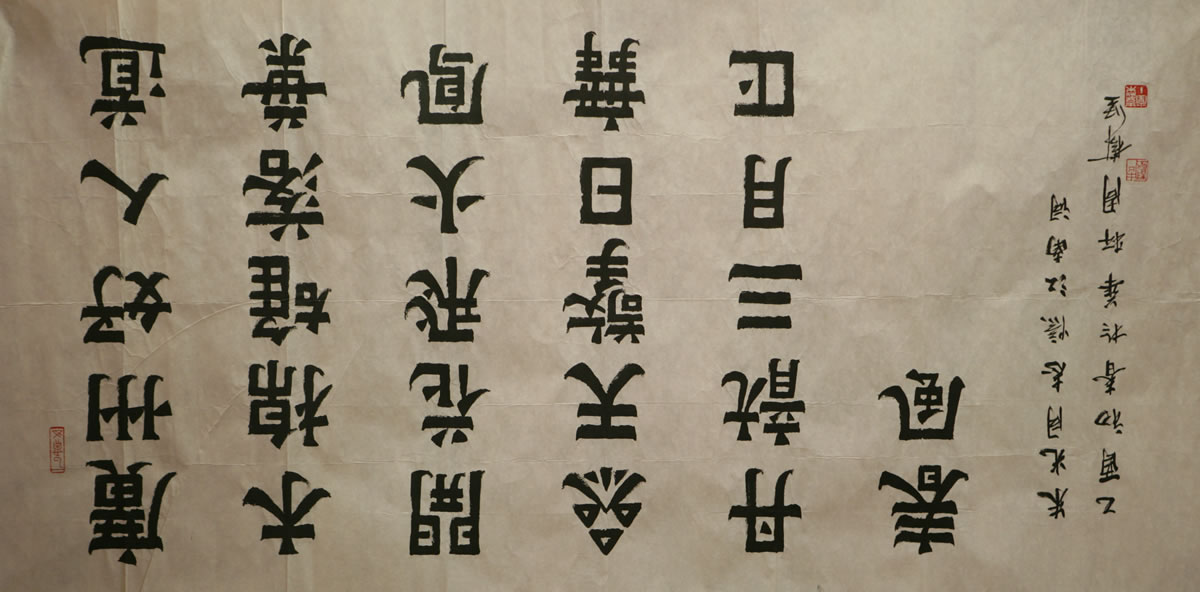 廣州好人道
木棉雄落葉
開花飛火鳳
參天擎日舞
丹龍三月正
春風
朱光同志憶江南詞
乙酉初春於周樹堅